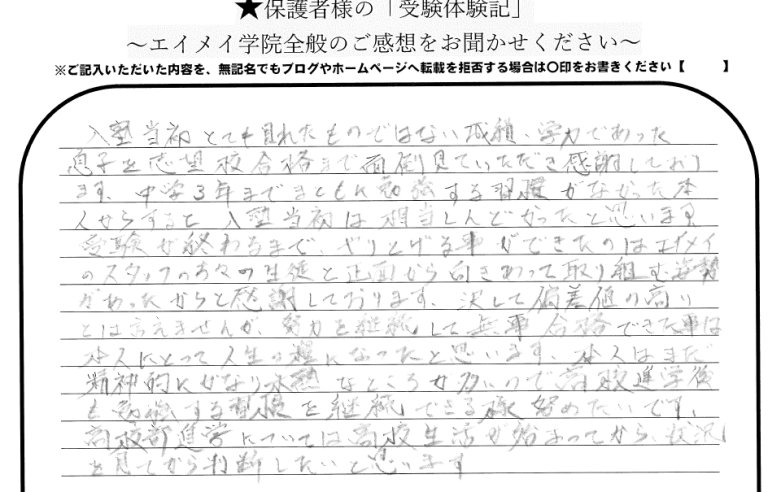 ★保護者様の「受験体験記」
～エイメイ学院全般のご感想をお聞かせください～
※ご記入いただいた内容を、無記名でもブログやホームページへ転載を拒否する場合は〇印をお書きください【　　】
入塾当初とても見れたものではない成績、学力であった
息子を志望校合格まで面倒見ていただき感謝しており
ます。中学3年までまともに勉強する習慣がなかった本
人からすると入塾当初は相当しんどかったと思います
受験が終わるまで、やりとげる事ができたのはエイメイ
のスタッフの方々の生徒と正面から向きあって取り組む姿勢
があったからと感謝しております。決して偏差値の高い
とは言えませんが、努力を継続して無事合格できた事は
本人にとって人生の糧になったと思います。本人はまだ
精神的にかなり未熟なところが多いので高校進学後
も勉強する習慣を継続できる様努めたいです。
高校部進学については高校生活が始まってから、状況
を見てから判断したいと思います